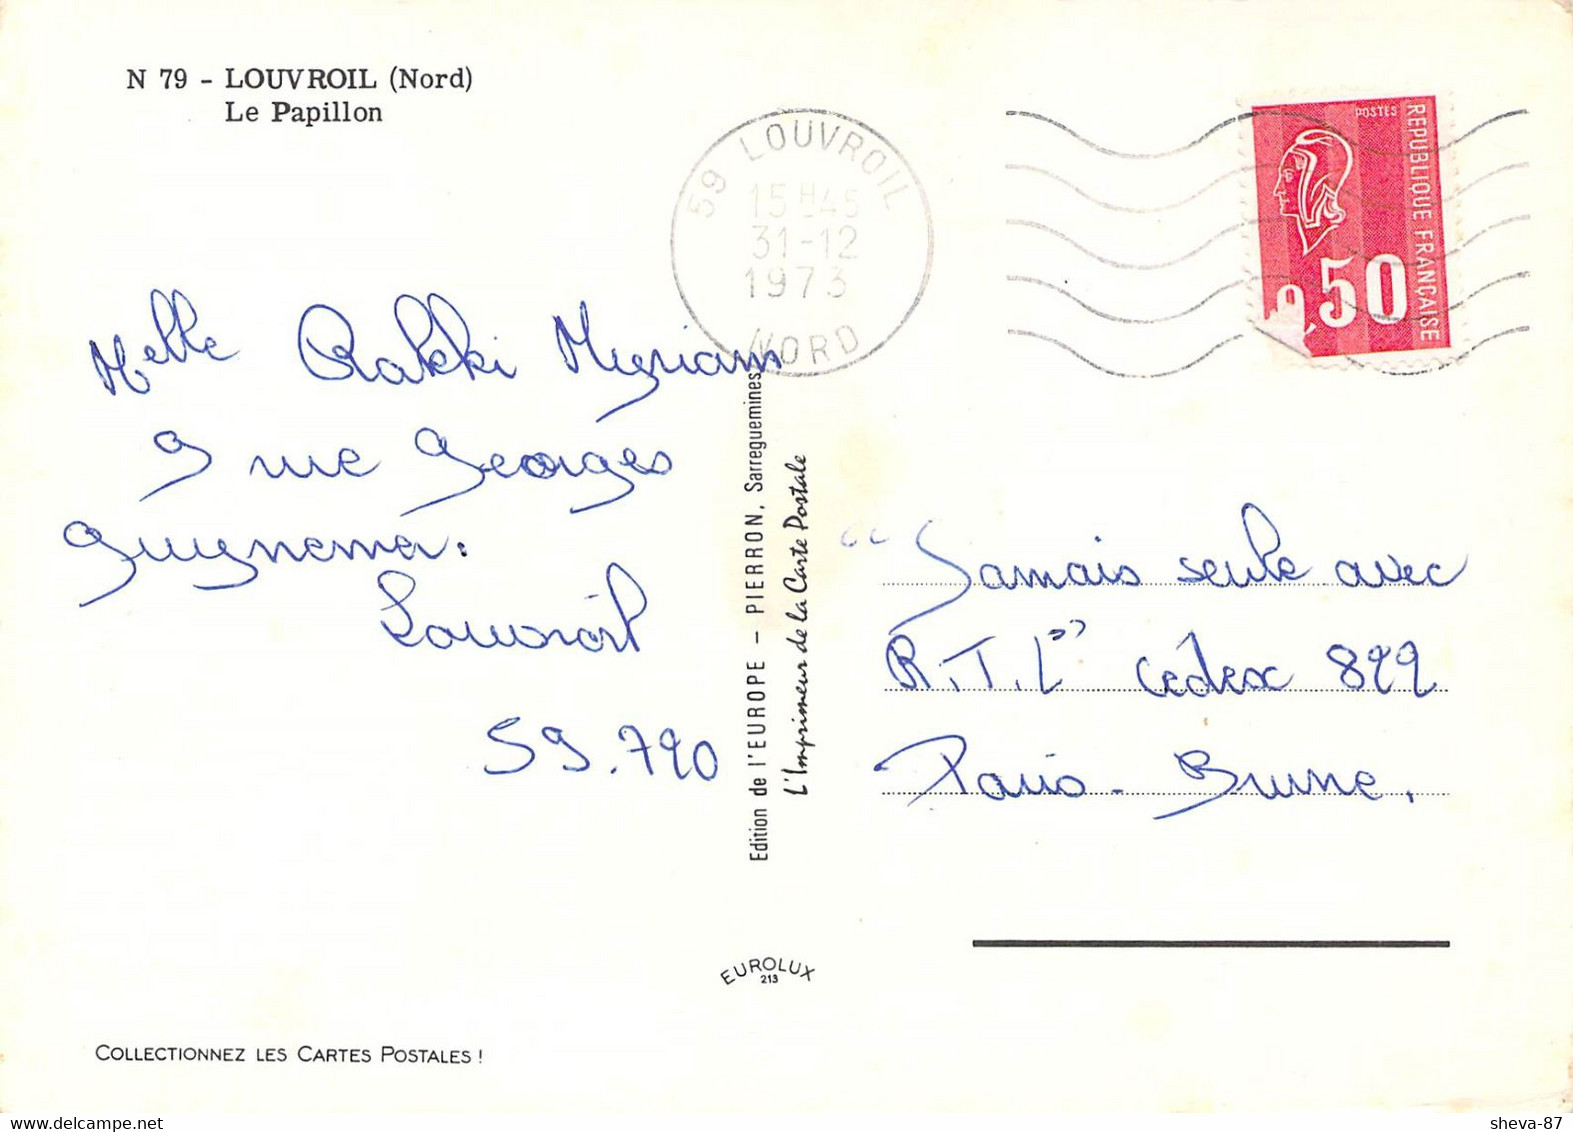 N 79 - LOUVROIL (Nord)
Le Papillon
59 LOUVROIL
15H45
31-12
1973
NORD
POSTES
REPUBLIQUE FRANÇAISE
0,50
Melle Rakki Myriam
9 rue Georges
Guynemer.
Louvroil
59.790
Edition de l'EUROPE - PIERRON, Sarreguemines
L'Imprimeur de la Carte Postale
“Jamais seule avec
R.T.L” cédex 899
Paris - Brune.
EUROLUX
213
COLLECTIONNEZ LES CARTES POSTALES !
www.delcampe.net
sheva-87